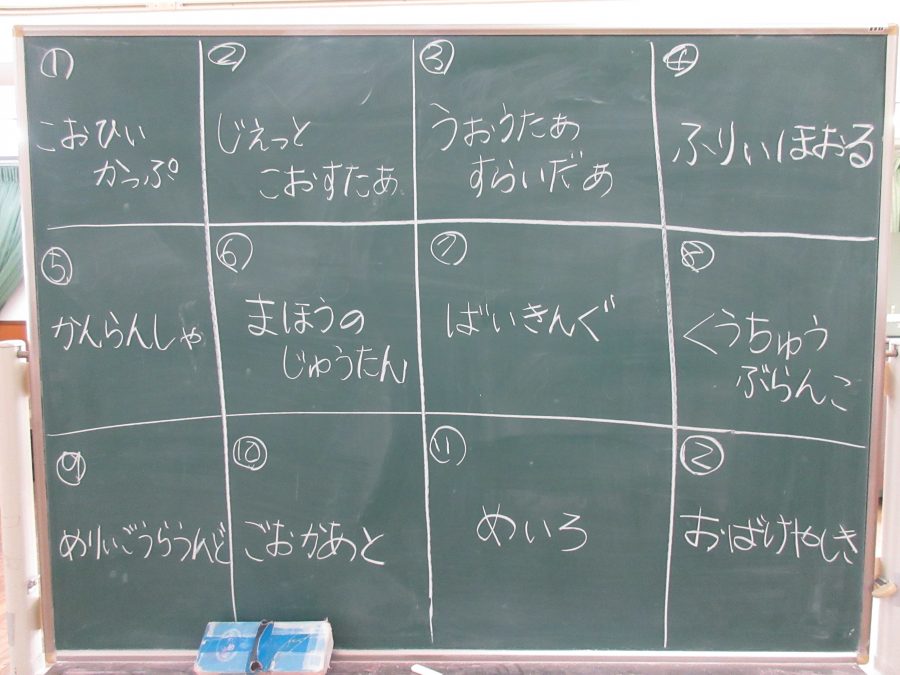 ①
こおひい
かっぷ
②
じぇっと
こおすたあ
③
うおうたあ
すらいだあ
④
ふりいほおる
⑤
かんらんしゃ
⑥
まほうの
じゅうたん
⑦
ばいきんぐ
⑧
くうちゅう
ぶらんこ
⑨
めりいごうらうんど
⑩
ごおかあと
⑪
めいろ
②
おばけやしき